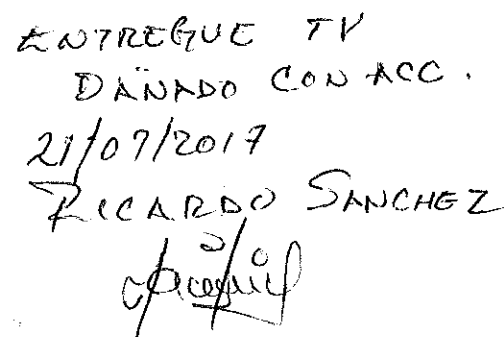 ENTREGUE TV
DAÑADO CON ACC.
21/07/2017
RICARDO SANCHEZ